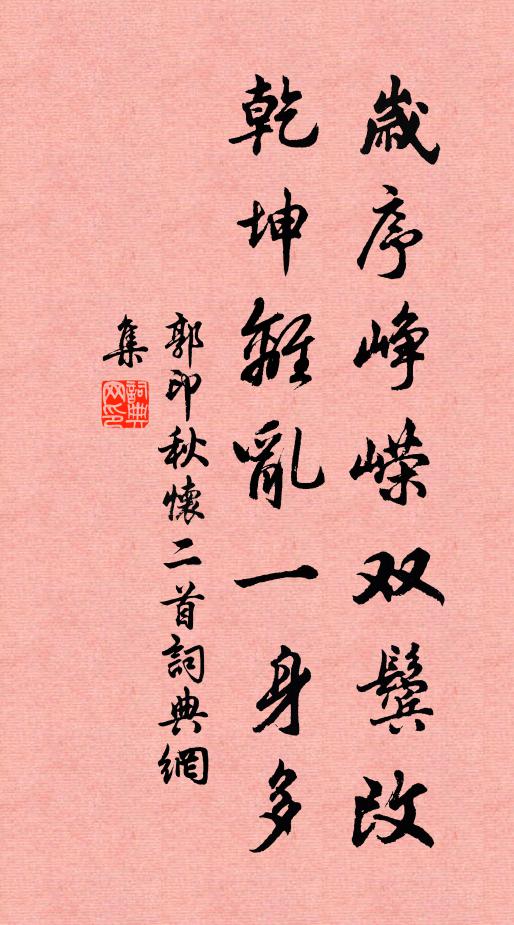 歲序峥嶸双鬓改
乾坤離亂一身多
郭印秋懷二首詞典網
集
詞典
网印